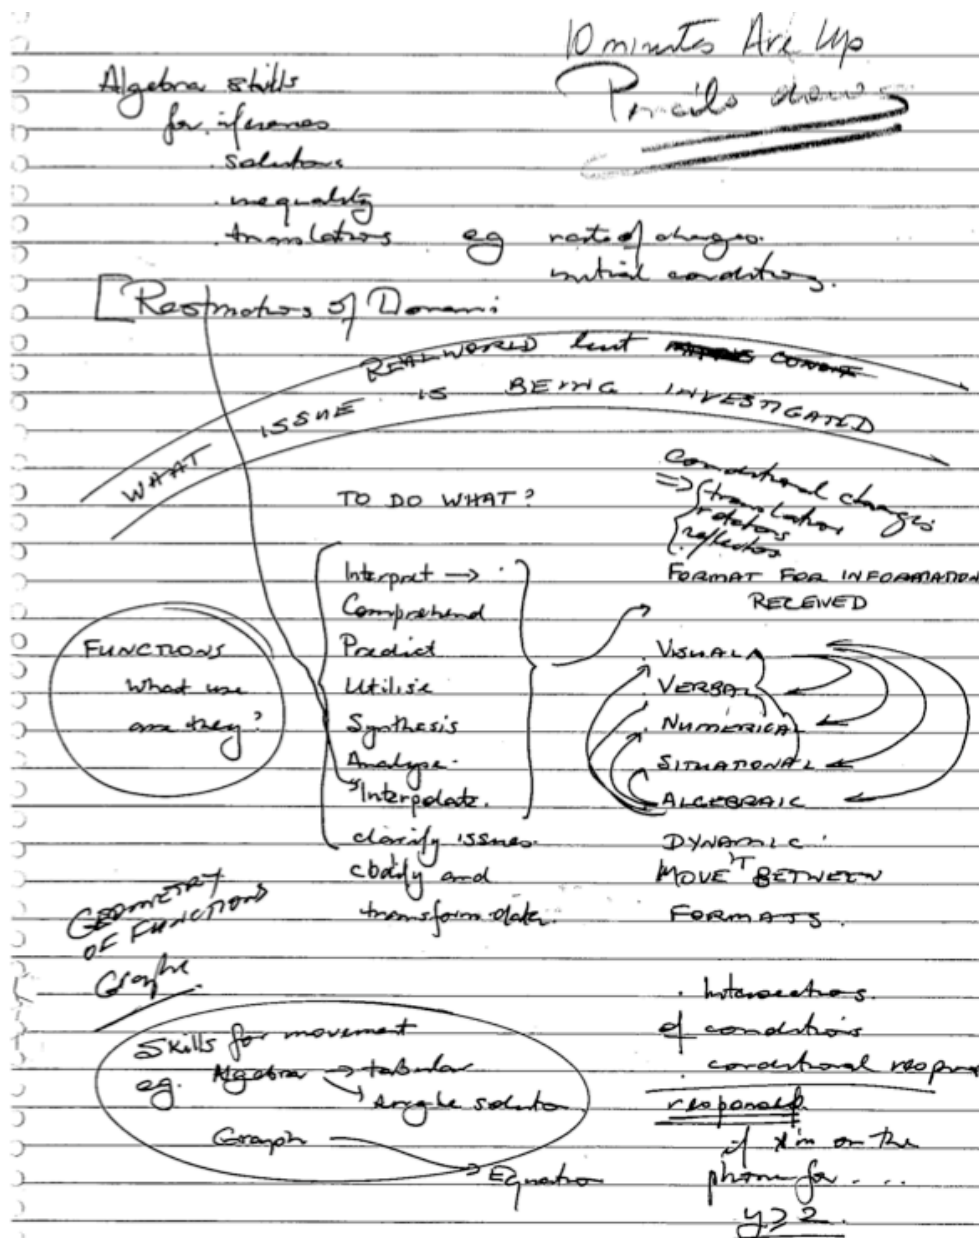 10 minutes Are Up
Pencils down
Algebra skills
for inferences
. solutions
. inequality
. translations eg rate of changes.
initial conditions.
[Restrictions of Domain:
REALWORLD but
WHAT ISSUE IS BEING INVESTIGATED
TO DO WHAT?
Conditional changes
⇒ {translation
rotations
reflection
FORMAT FOR INFORMATION
RECEIVED
Interpret →
Comprehend
Predict
Utilise
Synthesis
Analyse.
"Interpolate.
clarify issues.
codify and
transform data.
FUNCTIONS
What use
are they?
. VISUAL
. VERBAL
. NUMERICAL
. SITUATIONAL
. ALGEBRAIC
DYNAMIC.
MOVE'T BETWEEN
FORMATS.
GEOMETRY
OF FUNCTIONS
Graphs
Skills for movement
eg. Algebra → tabular
→ single solution
Graph → Equation
. Intersections.
of conditions
. conditional
response.
if on the
phone for ....
y ≥ 2.